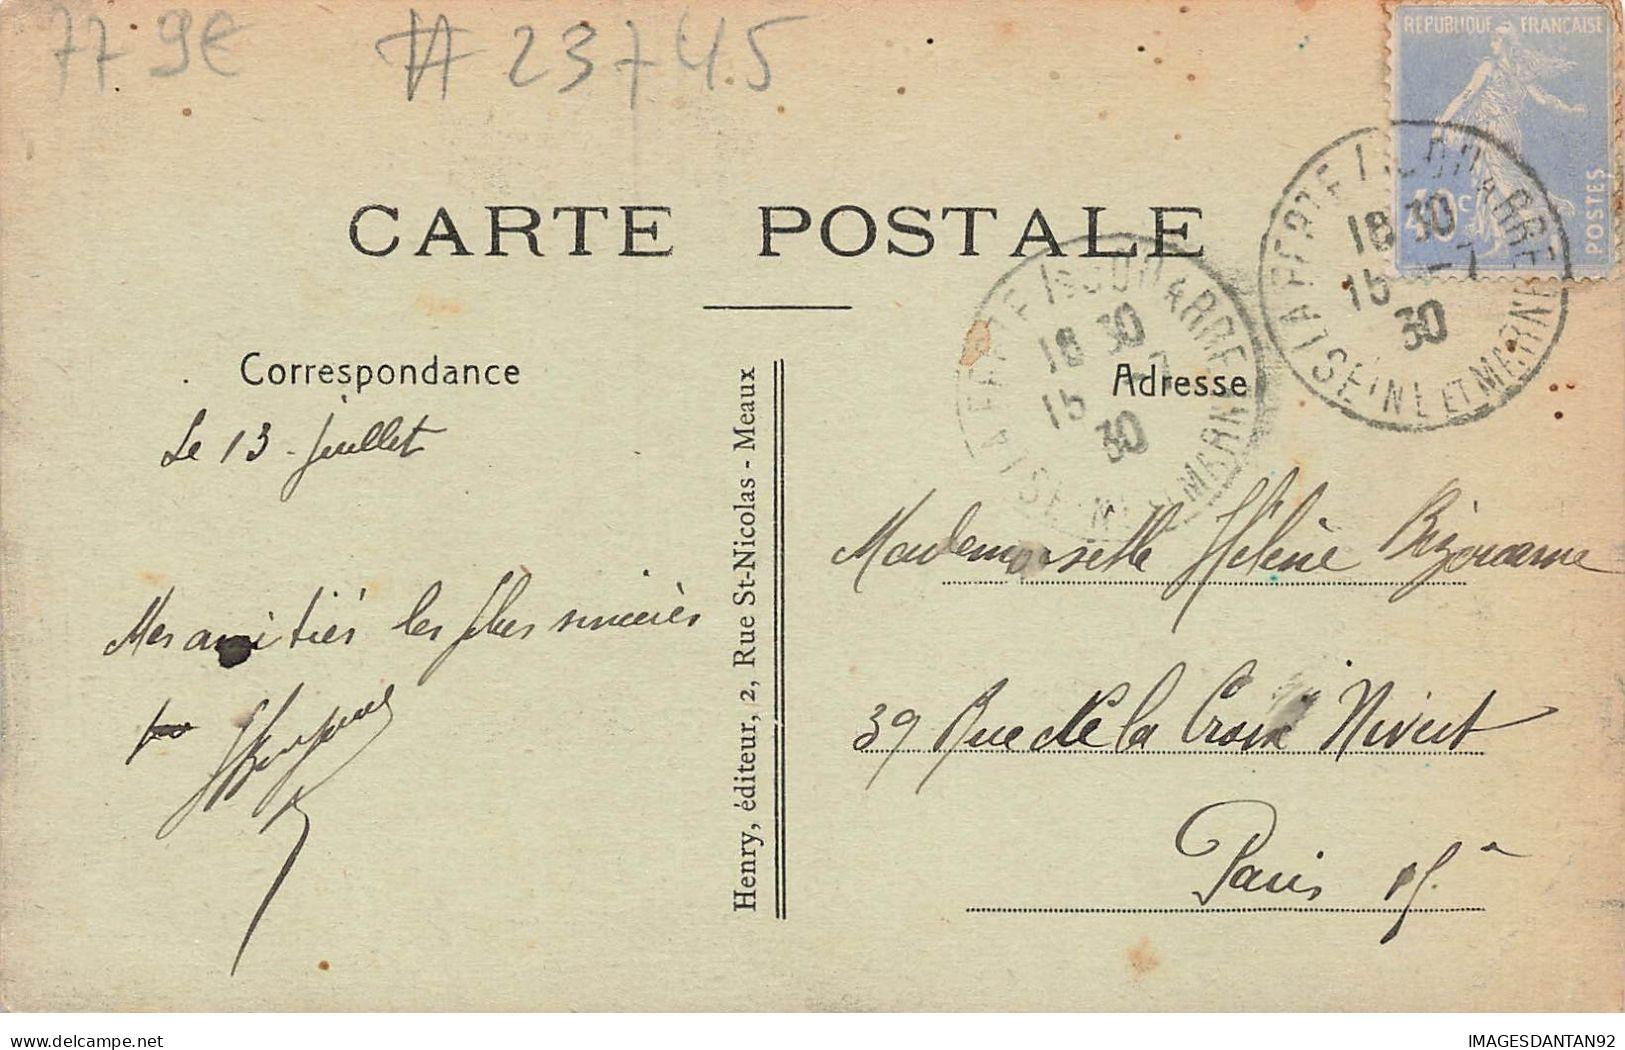 77 9€ #23745
REPUBLIQUE FRANÇAISE
40c
POSTES
CARTE POSTALE
18 30
15 -7
30
SEINE ET MARNE
18 30
15 -7
30
SEINE ET MARNE
Correspondance
Adresse
Le 13 Juillet
Mes amitiés les plus sincères
Henry, éditeur, 2, Rue St-Nicolas - Meaux
Mademoiselle Hélène
39 Rue de la Croix Nivert
Paris 15e
delcampe.net
IMAGESDANTAN92